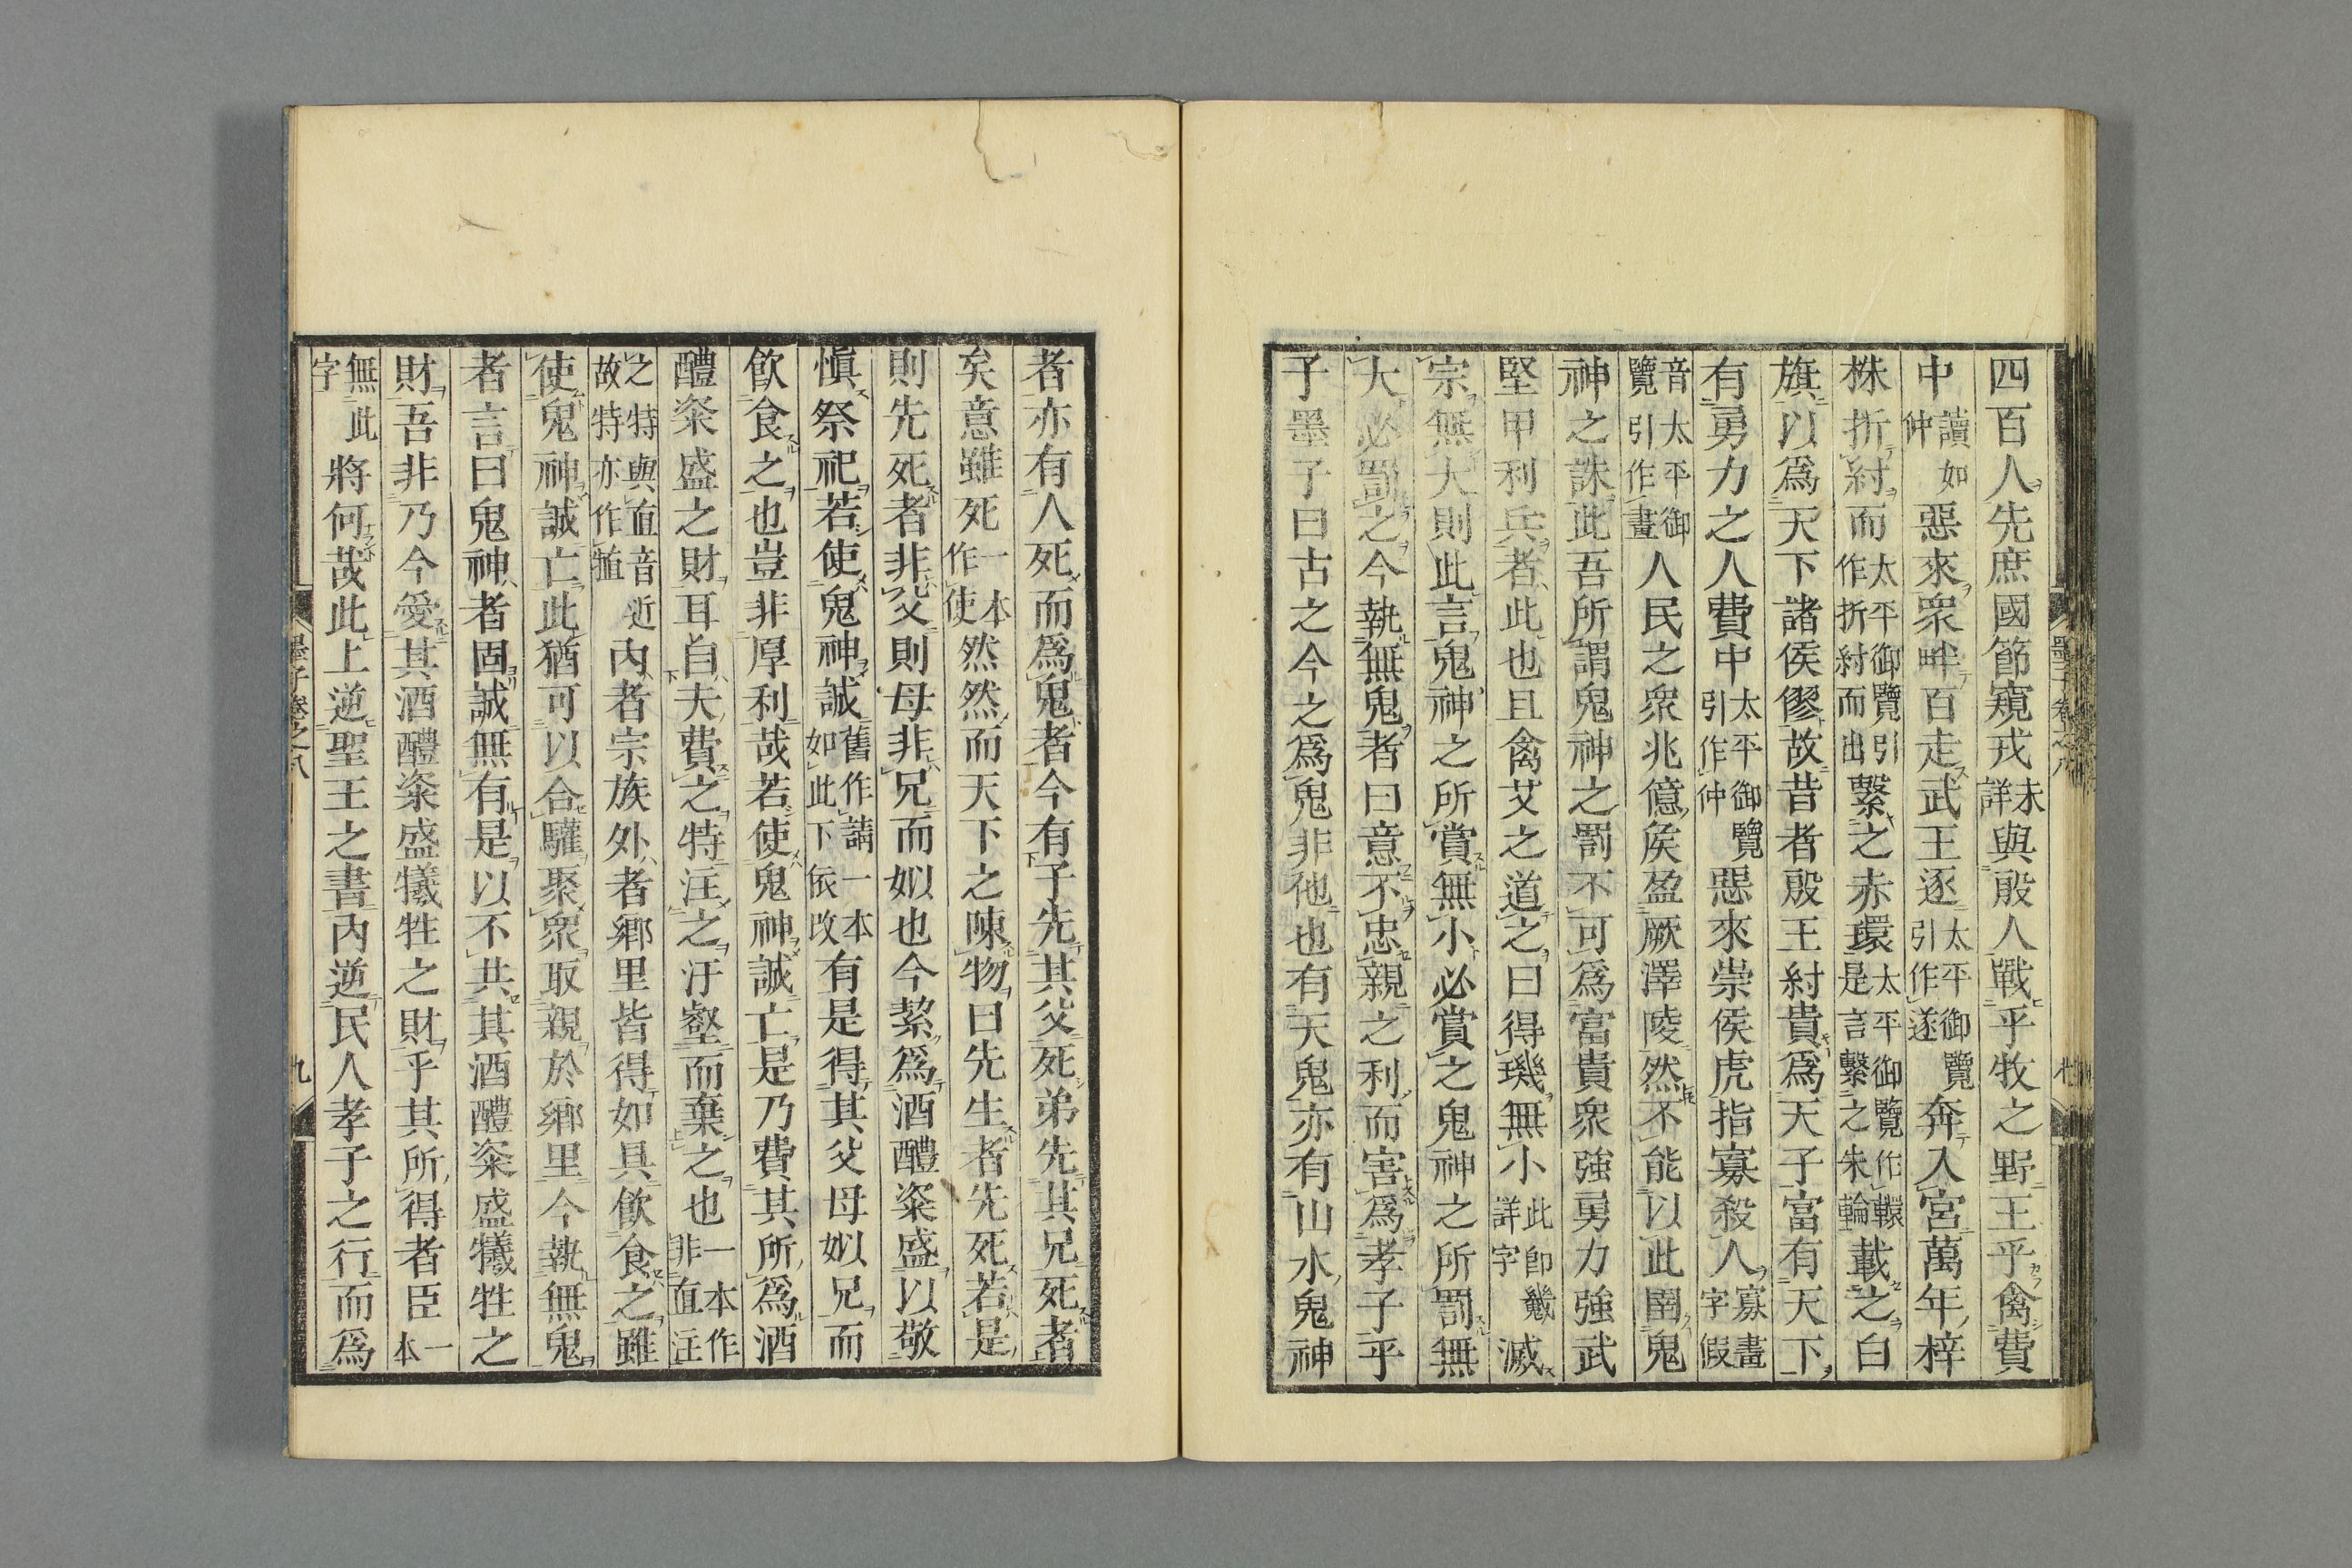 四百人先庶國節窺戎未詳與殷人戰乎牧之野王乎禽費
中讀如仲惡來衆畔百走武王逐太平御覽引作遂奔入宮萬年梓
株折紂而太平御覽引作折紂而出繫之赤環太平御覽作轘是言繫之朱輪載之白
旗以爲天下諸侯僇故昔者殷王紂貴爲天子富有天下
有勇力之人費中太平御覽引作仲惡來崇侯虎指寡殺人寡畫字假
音太平御覽引作畫人民之衆兆億矦盈厥澤陵然不能以此圉鬼
神之誅此吾所謂鬼神之罰不可爲富貴衆強勇力強武
堅甲利兵者此也且禽艾之道之曰得璣無小此卽禨詳字滅
宗無大則此言鬼神之所賞無小必賞之鬼神之所罰無
大必罰之今執無鬼者曰意不忠親之利而害爲孝子乎
子墨子曰古之今之爲鬼非他也有天鬼亦有山水鬼神
者亦有人死而爲鬼者今有子先其父死弟先其兄死者
矣意雖死一本作使然然而天下之陳物曰先生者先死若是
則先死者非父則母非兄而姒也今絜爲酒醴粢盛以敬
愼祭祀若使鬼神誠舊作請一本如此下依改有是得其父母姒兄而
飮食之也豈非厚利哉若使鬼神誠亡是乃費其所爲酒
醴粢盛之財耳自夫費之特注之汙壑而棄之也一本作非直注
之特與直音近故特亦作犆內者宗族外者鄉里皆得如具飮食之雖
使鬼神誠亡此猶可以合驩聚衆取親於鄉里今執無鬼
者言曰鬼神者固誠無有是以不共其酒醴粢盛犧牲之
財吾非乃今愛其酒醴粢盛犧牲之財乎其所得者臣一本
無此字將何哉此上逆聖王之書內逆民人孝子之行而爲
墨子卷之八
九